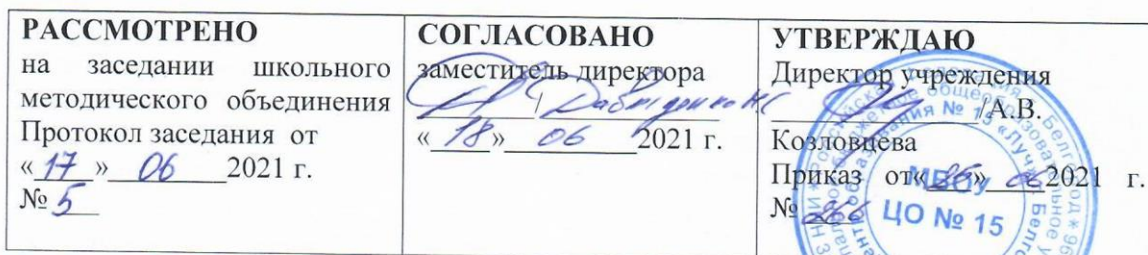 РАССМОТРЕНО
на заседании школьного
методического объединения
Протокол заседания от
«17» 06 2021 г.
№ 5
СОГЛАСОВАНО
заместитель директора
/
«18» 06 2021 г.
УТВЕРЖДАЮ
Директор учреждения
/А.В.
Козловцева
Приказ от« » 06 2021 г.
№ 266
МБОУ
ЦО № 15